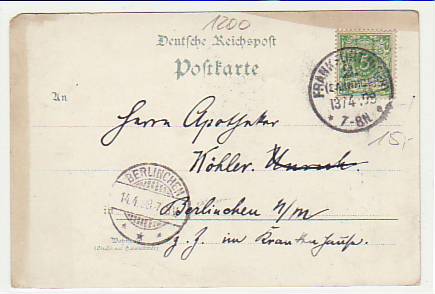 1200
Deutsche Reichspost
Postkarte
5
13/4 99
* 7-8N. *
An
Herrn Apotheker
15,-
Köhler.
BERLINCHEN
14.4.99.7
Berlinchen N/M
z. Z. im Krankenhause.